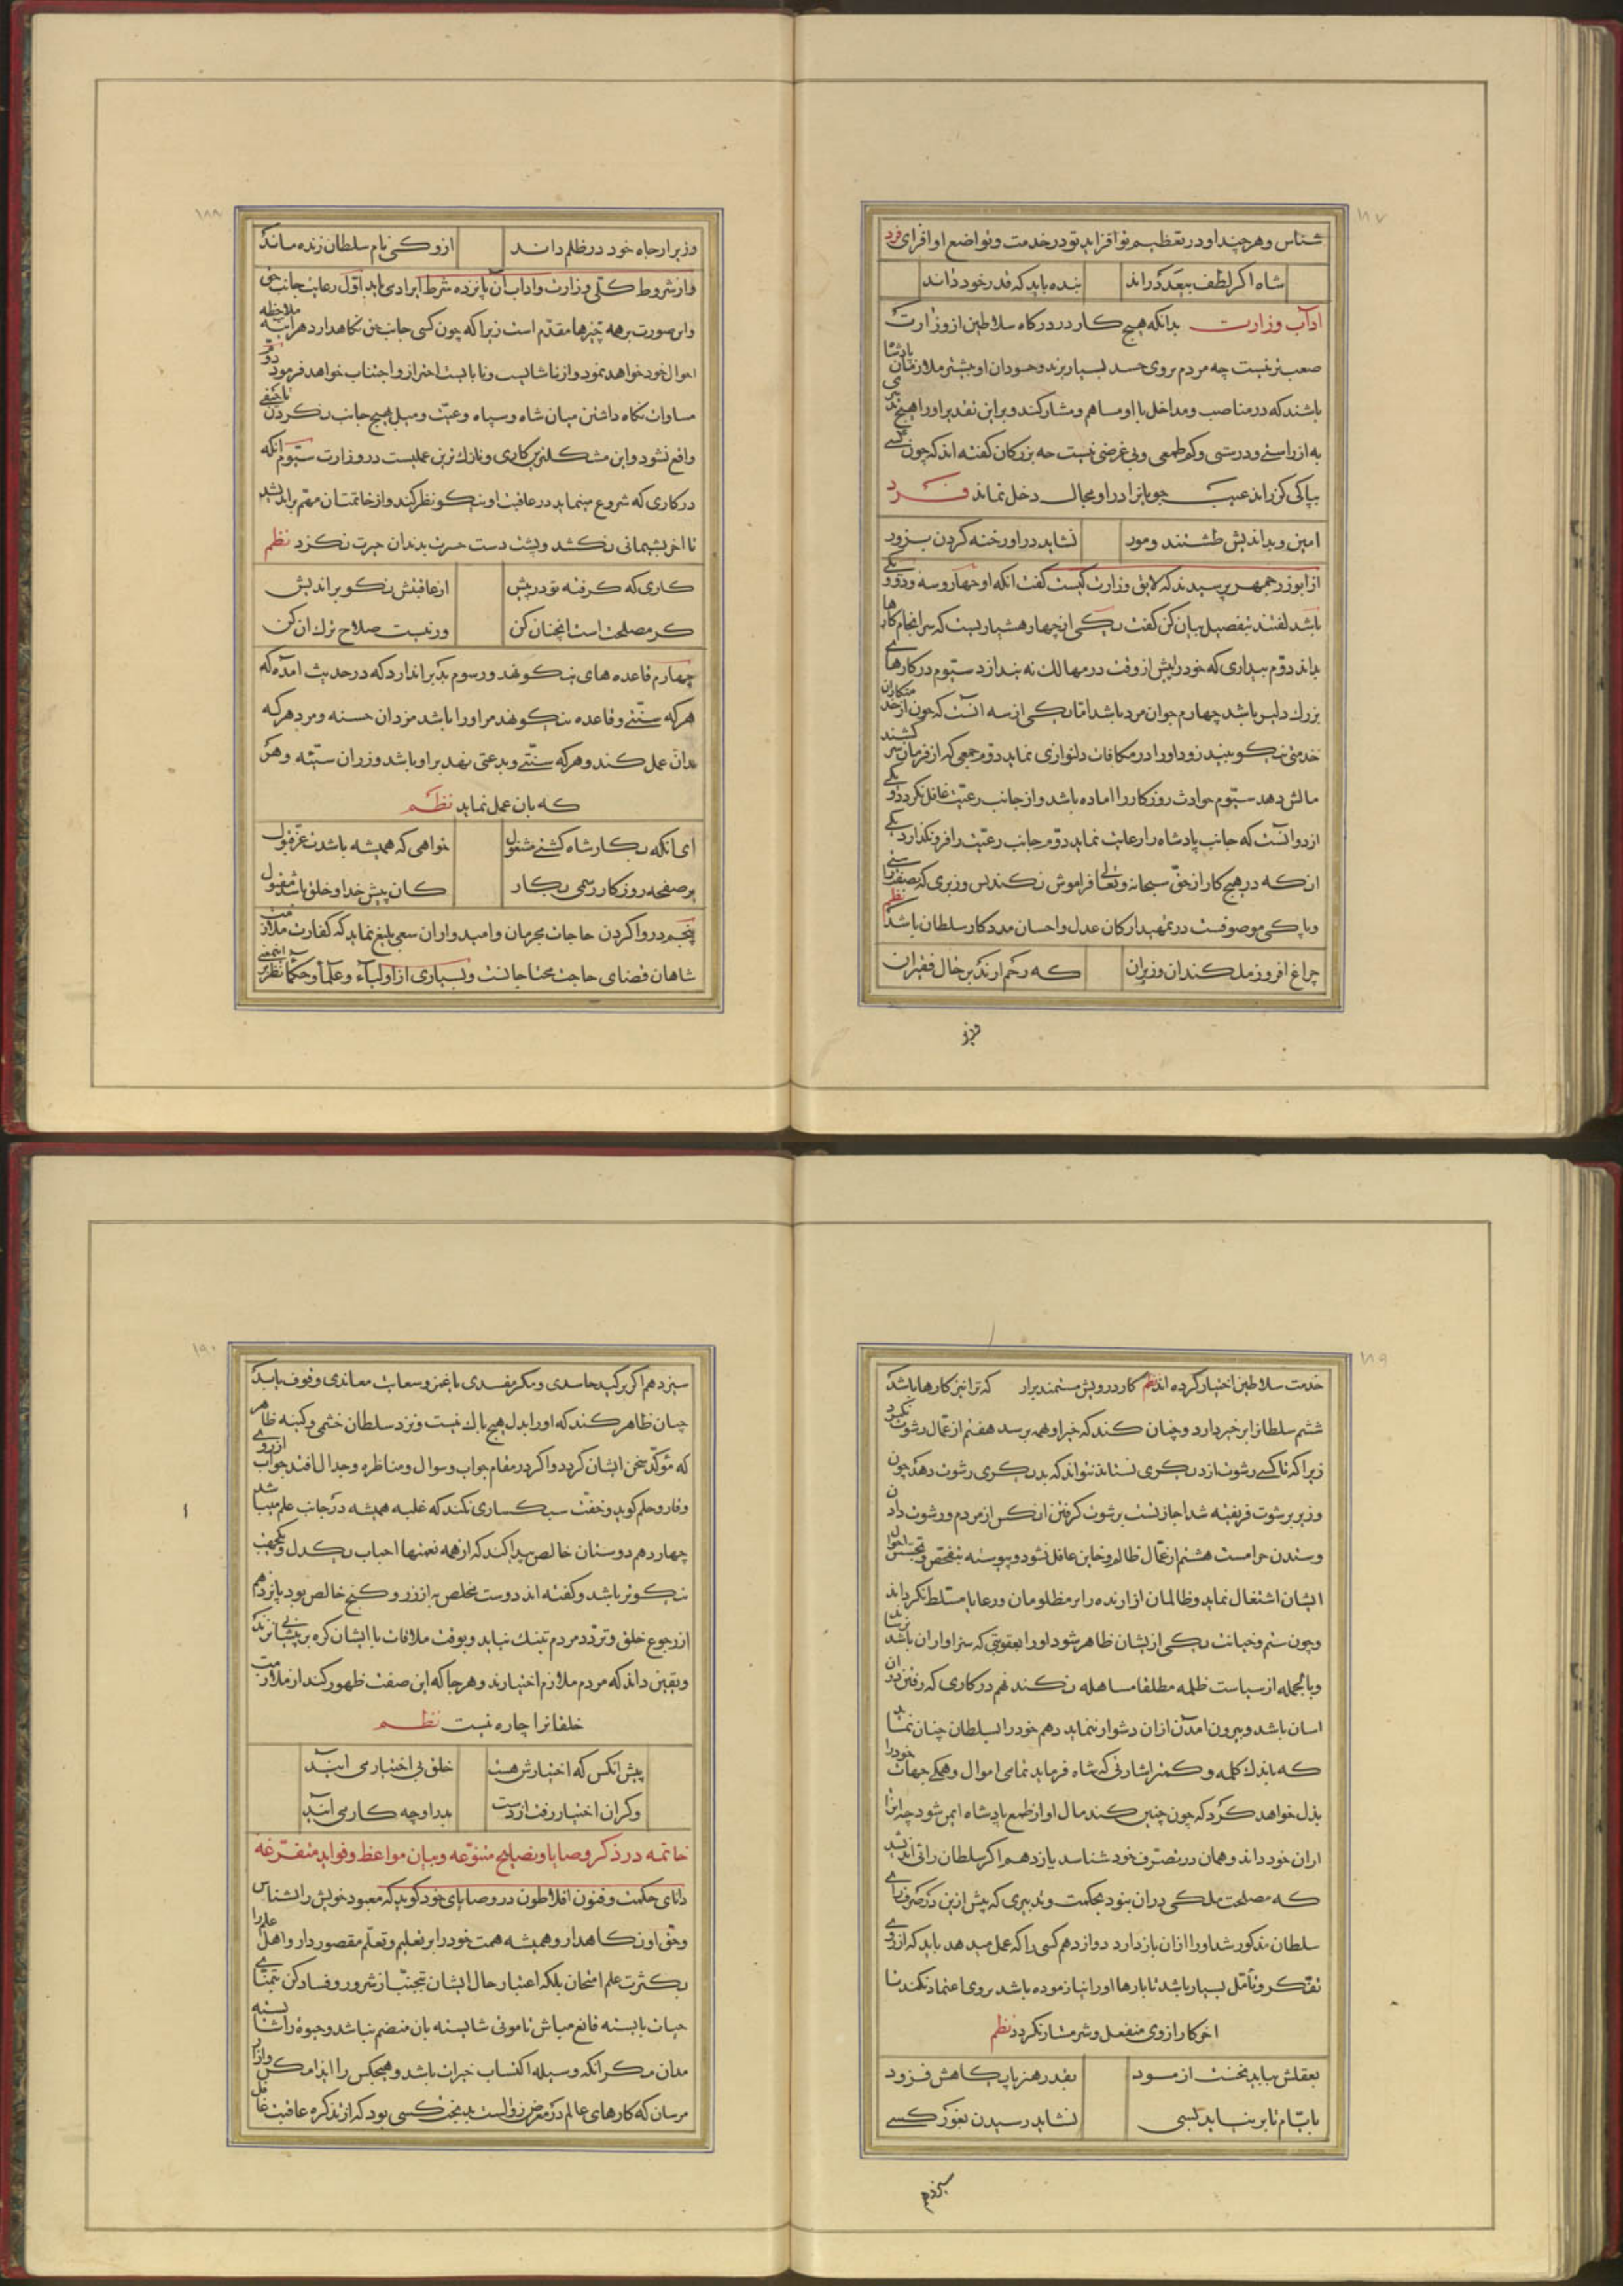 ١٨٧
شناس و هر چند او در تعظیم تو افزاید تو در خدمت و تواضع او افزای فرد
شاه اکر لطف بیعدد راند
بنده باید که قدر خود داند
اداب وزارت بدانکه هیچ کار در درکاه سلاطین از وزارت
صعب‌تر نیست چه مردم بروی حسد بسیار برند و حسودان او بیشتر ملازمان پادشا
باشند که در مناصب و مداخل با او مساهم و مشارکند و برین تقدیر او را هیچ
به از راستی و درستی و کم طمعی و بی غرضی نیست چه بزرکان کفته اند که چون کسی
بپاکی کذراند عیب جویانرا در او مجال دخل نماند فرد
امین و بداندیش طشتند و مور
نشاید در او رخنه کردن بزور
از ابوزرجمهر پرسیدند که لایق وزارت کیست کفت انکه او چهار و سه و دو و یکی
باشد کفتند بتفصیل بیان کن کفت یکی از چهار هشیاریست که سرانجام کارها
بداند دوم بیداری که خود را پیش از وقت در مهالک نه بیندازد سیوم در کارهای
بزرك دلیر باشد چهارم جوان مرد باشد اما یکی از سه انست که چون از خدمتکاران
خدمتی نیکو بیند زود او را در مکافات دلنوازی نماید دوم جمعی که از فرمان سر کشند
مالش دهد سیوم حوادث روزکار را اماده باشد و از جانب رعیت غافل نکردد و یکی
از دو انست که جانب پادشاه را رعایت نماید دوم جانب رعیت را فرو نکذارد یکی
انکه در هیچ کار از حق سبحانه و تعالی فراموش نکند پس وزیری که بصفت راستی
و پاکی موصوفست در تمهید ارکان عدل و احسان مددکار سلطان باشد نظم
چراغ افروز ملکند ان وزیران
که رحم ارند بر حال فقیران
وزیر
١٨٨
وزیر ار جاه خود در ظلم داند
ازو کی نام سلطان زنده ماند
و از شروط کلی وزارت و اداب آن پانزده شرط ایرادمی یابد اول رعایت جانب حق
و این صورت بر همه چیزها مقدم است زیرا که چون کسی جانب حق نکاهدارد هر اینه ملاحظه
احوال خود خواهد نمود و از ناشایست و نابایست احتراز و اجتناب خواهد فرمود دوم
مساوات نکاه داشتن میان شاه و سپاه و رعیت و میل بهیچ جانب نکردن تا حیفی
واقع نشود و این مشکلترین کاری و نازك ترین عملیست در وزارت سیوم انکه
در کاری که شروع مینماید در عاقبت او نیکو نظر کند و از خاتمت ان مهم براندیشد
تا اخر پشیمانی نکشد و پشت دست حسرت بدندان حیرت نکزد نظم
کاری که کرفته تو در پیش
از عاقبتش نکو براندیش
کر مصلحت است انچنان کن
ور نیست صلاح ترك ان کن
چهارم قاعده های نیکو نهد و رسوم بد براندازد که در حدیث امده که
هر که سنتی و قاعده نیکو نهد مر او را باشد مزد ان حسنه و مزد هر که
بدان عمل کند و هر که سنتی و بدعتی نهد بر او باشد وزر ان سیئه و هر
که بان عمل نماید نظم
ای انکه بکار شاه کشتی مشغول
خواهی که همیشه باشدت عز قبول
بر صفحه روزکار رسمی بکار
کان پیش خدا و خلق باشد مقبول
پنجم در روا کردن حاجات مجرمان و امیدواران سعی بلیغ نماید که کفارت ملازمت
شاهان قضای حاجت محتاجانست و بسیاری از اولیاء و علما و حکما نظر بر
١٨٩
خدمت سلاطین اختیار کرده اند نظم کار درویش مستمند برار که ترا نیز کارها باشد
ششم سلطانرا بر خیر دارد و چنان کند که خیر او بهمه برسد هفتم از عمال رشوت نکیرد
زیرا که تا کسی رشوت از دیکری نستاند نتواند که بدیکری رشوت دهد چون
وزیر برشوت فریفته شد اجازتست برشوت کرفتن ان کس از مردم و رشوت دادن
و ستدن حرامست هشتم از عمال ظالم و خاین غافل نشود و پیوسته بتفحص و تجسس احوال
ایشان اشتغال نماید و ظالمان ازارنده را بر مظلومان و رعایا مسلط نکرداند
و چون ستم و خیانت یکی از ایشان ظاهر شود او را بعقوبتی که سزاوار ان باشد برساند
و بالجمله از سیاست ظلمه مطلقا مساهله نکند نهم در کاری که رفتن در ان
اسان باشد و بیرون امدن از ان دشوار ننماید دهم خود را بسلطان چنان نماید
که باندك کلمه و کمتر اشارتی که شاه فرماید تمامی اموال و همکی جهات خود را
بذل خواهد کرد که چون چنین کند مال او از طمع پادشاه ایمن شود چه انرا
از ان خود داند و همان در تصرف خود شناسد یازدهم اکر سلطان رائی اندیشد
که مصلحت ملکی در ان نبود بحکمت و تدبیری که پیش ازین در
سلطان مذکور شد او را از ان باز دارد دوازدهم کسی را که عمل میدهد باید که از روی
تفکر و تأمل بسیار باشد تا بارها او را نیازموده باشد بروی اعتماد نکند تا
اخر کار از وی منفعل و شرمسار نکردد نظم
بعقلش بباید نخست ازمود
بقدر هنر پایکاهش فزود
بایام تا بر نیاید بسی
نشاید رسیدن بغور کسی
سیزدهم
١٩٠
سیزدهم اکر بر کید حاسدی و مکر مفسدی یا غمز و سعایت معاندی وقوف یابد
چنان ظاهر کند که او را بدل هیچ باك نیست و نزد سلطان خشمی و کینه ظاهر
که مؤکد سخن ایشان کردد و اکر در مقام جواب و سوال و مناظره و جدال افتد جواب از روی
وقار و حلم کوید و خفت سبکساری نکند که غلبه همیشه در جانب حلم میباشد
چهاردهم دوستان خالص پیدا کند که از همه نعمتها احباب یکدل و یکجهت
نیکوتر باشد و کفته اند دوست مخلص به از زر و کنج خالص بود پانزدهم
از رجوع خلق و تردد مردم بتنك نیاید و بوقت ملاقات با ایشان کره بر پیشانی نزند
و یقین داند که مردم ملازم اختیارند و هر جا که این صفت ظهور کند از ملازمت
خلقانرا چاره نیست نظم
پیش انکس که اختیارش هست
خلق بی اختیار می ایند
وکر ان اختیار رفت از دست
بدر او چه کار می ایند
خاتمه در ذکر وصایا و نصایح متنوعه و بیان مواعظ و فواید متفرعه
دانای حکمت و فنون افلاطون در وصایای خود کوید که معبود خویش را بشناس
و حق او نکاهدار و همیشه همت خود را بر تعلیم و تعلم مقصور دار و اهل علم را
بکثرت علم امتحان بلکه اعتبار حال ایشان بتجنب از شرور و فساد کن بتمنای
حیات بایسته قانع مباش تا موتی شایسته بان منضم نباشد و حیوة را شایسته
مدان مکر انکه وسیله اکتساب خیرات باشد و هیچکس را ایذا مکن و ازار
مرسان که کارهای عالم در معرض زوالست بدبخت کسی بود که از تذکره عاقبت غافل